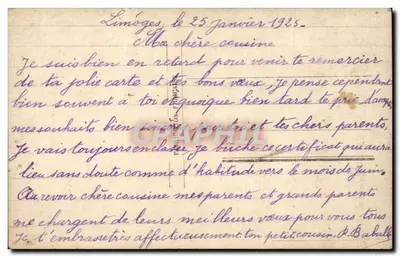 Limoges, le 25 janvier 1925.
Ma chère cousine
Je suis bien en retard pour venir te remercier
de ta jolie carte et tes bons vœux. Je pense cependant
bien souvent à toi et quoique bien tard te prie d'avoir
mes souhaits bien et tes chers parents.
Je vais toujours en classe, je bûche ce certificat qui aura
lieu sans doute comme d'habitude vers le mois de juin.
Au revoir chère cousine mes parents et grands parents
me chargent de leurs meilleurs vœux pour vous tous
Je t'embrasse très affectueusement ton petit cousin R.